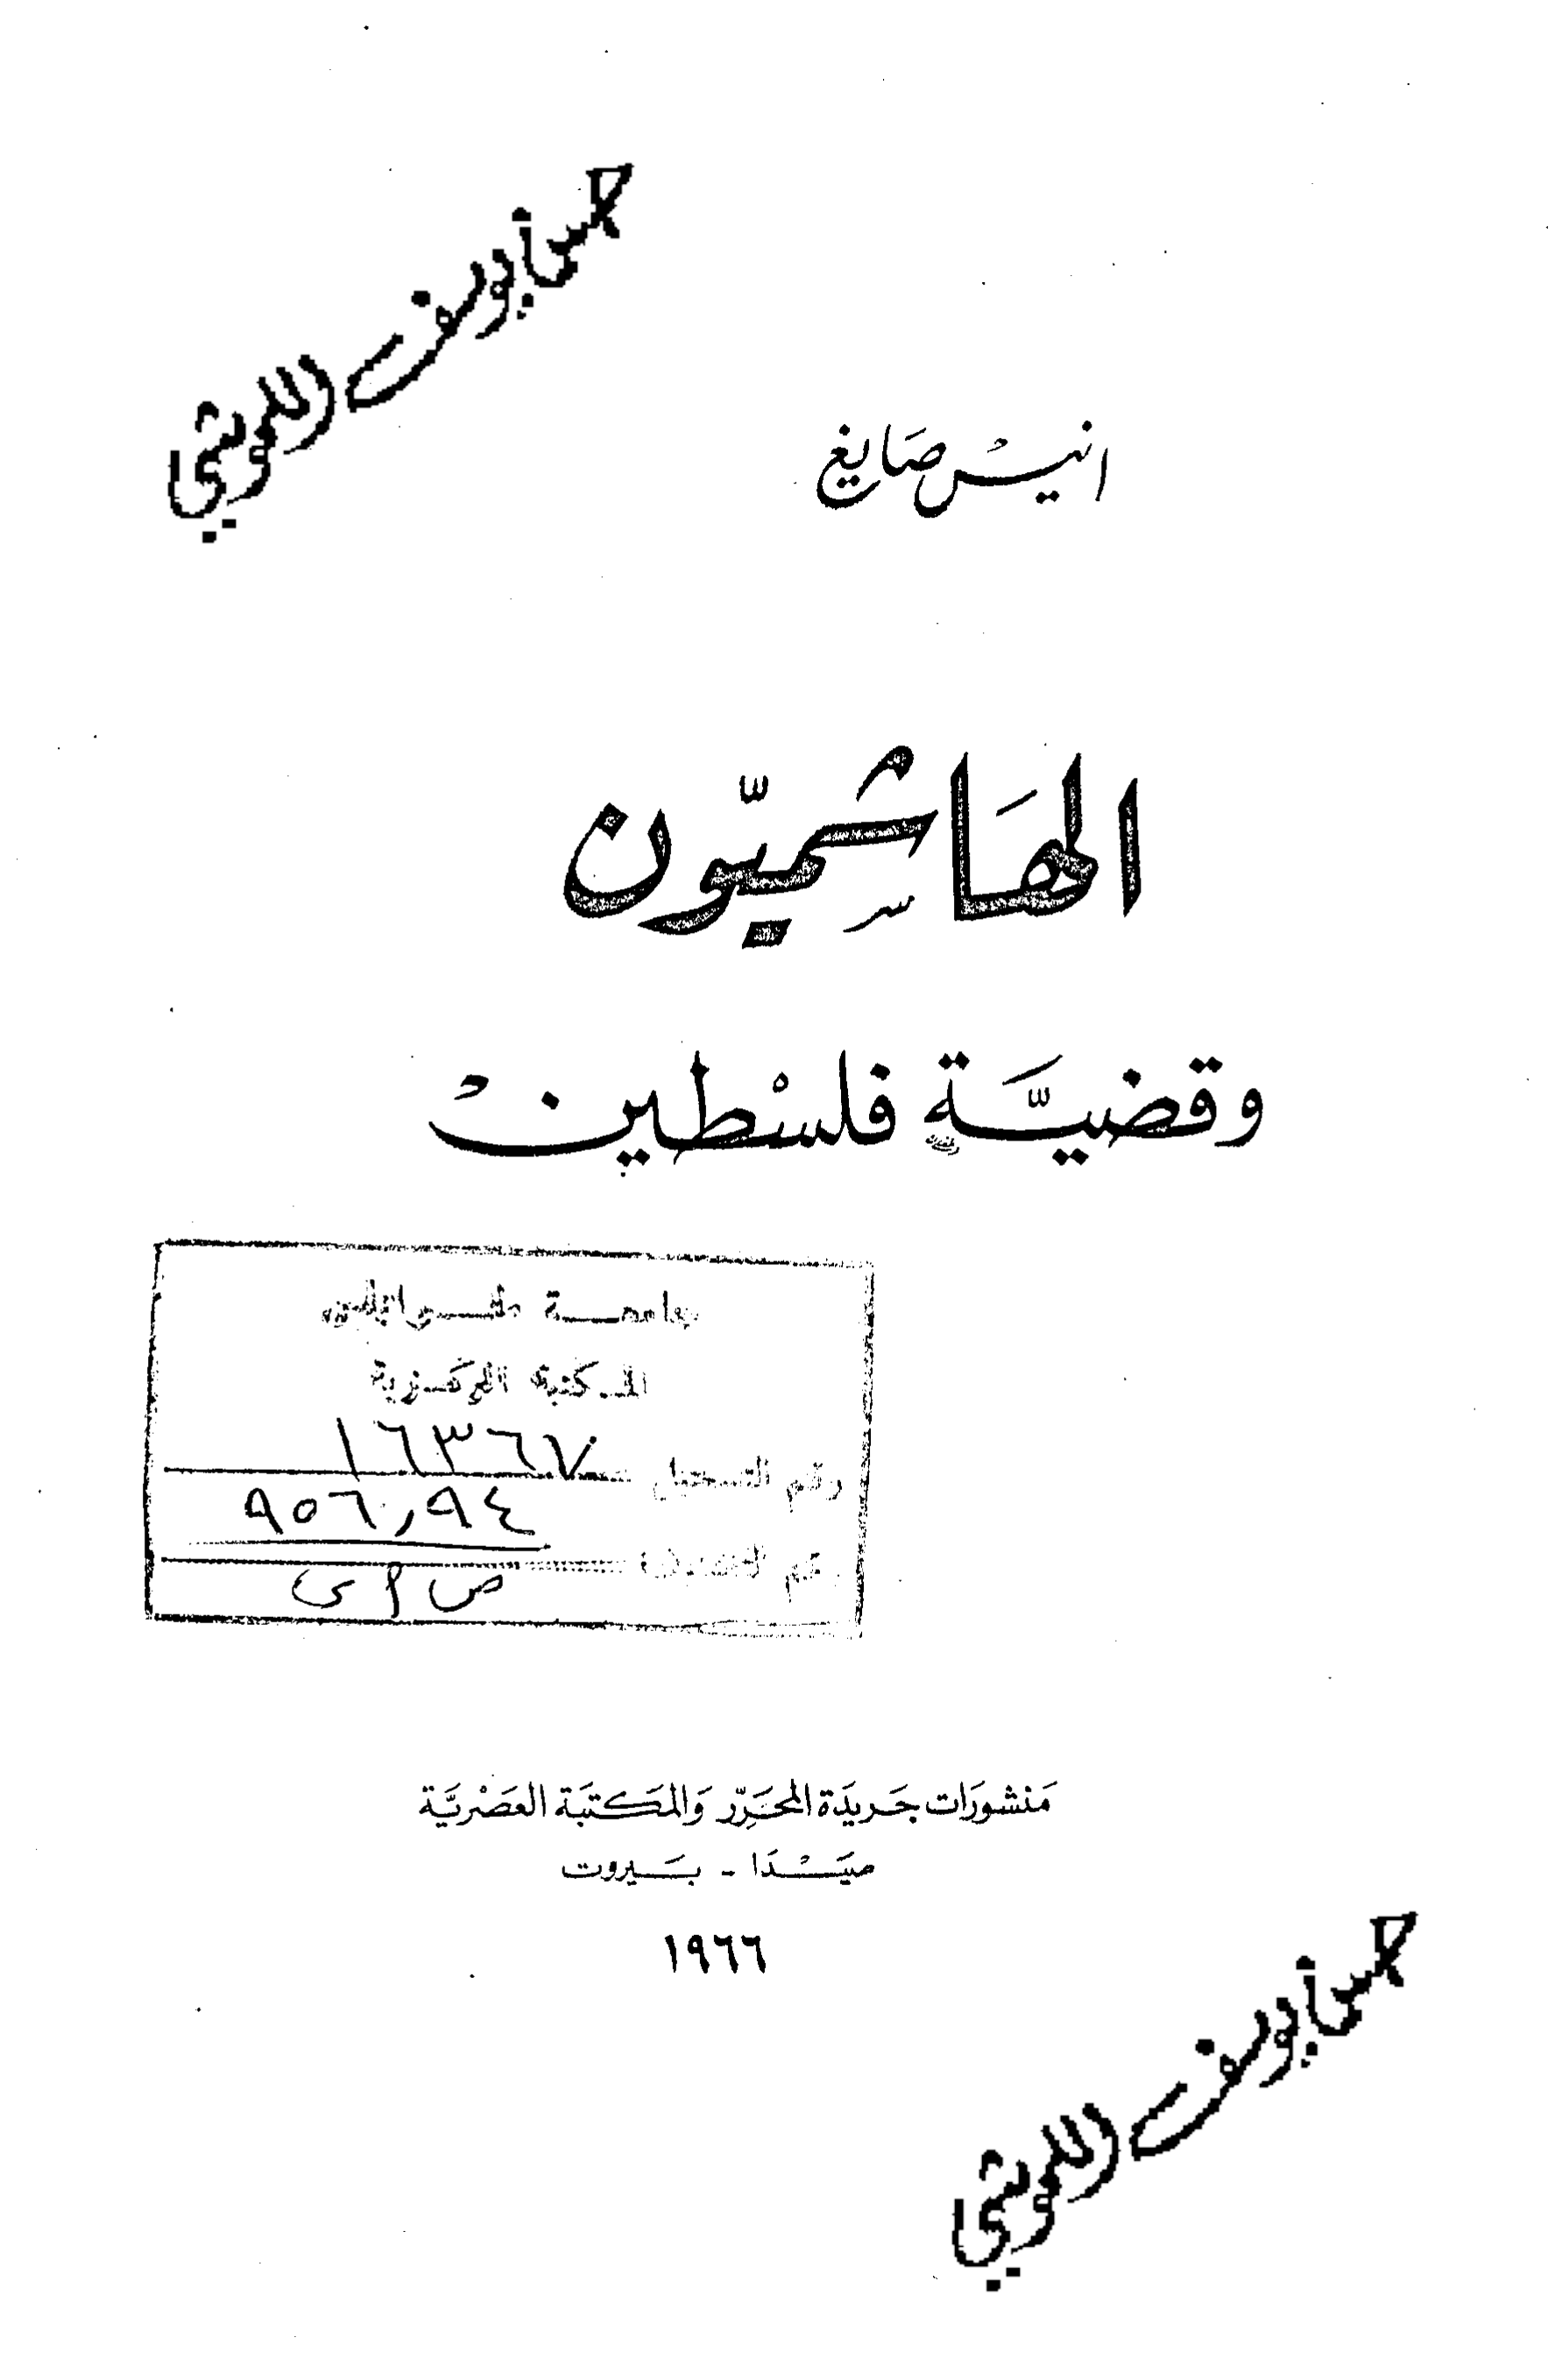 انيس صايغ
الهَاشِميّون
وقضيَّة فلسْطين
جامعة طرابلس
المكتبة المركزية
رقم التسجيل ١٦٣٦٧
٩٥٦,٩٤
رقم التصنيف
ص ا ى
مَنشورَات جَريدَة المحَرِّر وَالمَكتبَة العَصْريَّة
صَيْدَا - بَيروت
١٩٦٦